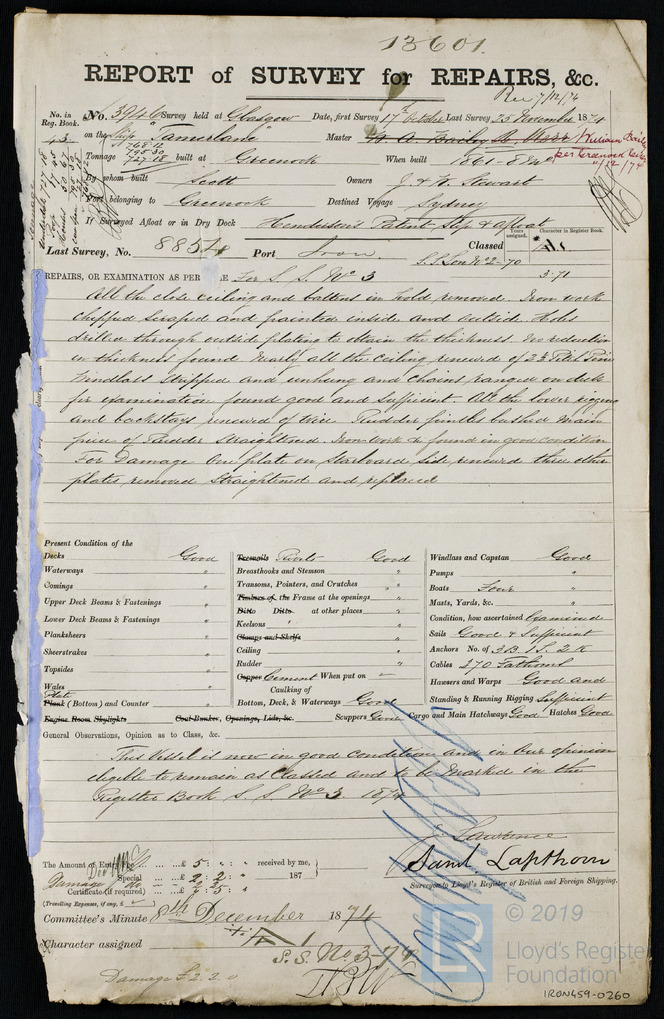 13601.
REPORT of SURVEY for REPAIRS, &c.
Rec 7/12/74
No. in Reg. Book. No. 3946 Survey held at Glasgow Date, first Survey 17th October Last Survey 25 November 1874
43 on the Ship "Tamerlane" Master W. A. Bailey William Bailey
per Greenock
Tonnage 768.12 795.30 727.18 built at Greenock When built 1861-8 mo
By whom built Scott Owners J. & W. Stewart
Port belonging to Greenock Destined Voyage Sydney
If Surveyed Afloat or in Dry Dock Henderson's Patent Slip & afloat
Years assigned. Character in Register Book.
Last Survey, No. 8854 Port Iron. Classed
S.S. Lon No 2-70
3.71
REPAIRS, OR EXAMINATION AS PER For S. S. No 3
All the close ceiling and battens in hold removed. Iron work
chipped scraped and painted inside and outside. Holes
drilled through outside plating to obtain the thickness. No reduction
in thickness found. Nearly all the ceiling renewed of 2½ Pitch Pine
Windlass stripped and unhung and chains ranged on deck
for examination found good and sufficient. All the lower rigging
and backstays renewed of wire Rudder pintles bushed main
piece of Rudder Straightened. Ironwork &c found in good condition
For Damage One plate on Starboard Side renewed three other
plates removed Straightened and replaced
Present Condition of the
Decks Good
Waterways "
Comings "
Upper Deck Beams & Fastenings "
Lower Deck Beams & Fastenings "
Planksheers "
Sheerstrakes "
Topsides "
Wales "
Plate
Plank (Bottom) and Counter "
Engine Room Skylights Coal Bunker, Openings, Lids, &c.
Treenails Rivets Good
Breasthooks and Stemson "
Transoms, Pointers, and Crutches "
Timbers of the Frame at the openings "
Ditto Ditto at other places "
Keelsons "
Clamps and Shelfs
Ceiling "
Rudder "
Copper Cement When put on –
Caulking of
Bottom, Deck, & Waterways Good
Scuppers Good Cargo and Main Hatchways Good Hatches Good
Windlass and Capstan Good
Pumps "
Boats Four "
Masts, Yards, &c. "
Condition, how ascertained Examined
Sails Good & Sufficient
Anchors No. of 3B. 1S. 2K
Cables 270 Fathoms
Hawsers and Warps Good and
Standing & Running Rigging Sufficient
General Observations, Opinion as to Class, &c.
This Vessel is now in good condition and in our opinion
eligible to remain as Classed and to be Marked in the
Register Book S. S. No 3. 1874
J. Lawrence
Saml Lapthorn
Surveyors to Lloyd's Register of British and Foreign Shipping.
The Amount of Entry Fee ... ... £ 5 : " : " received by me,
Special ... ... £ 2 : 2 : " 187
Damage
Certificate (if required) ... £ " : 5 : "
(Travelling Expenses, if any, £ )
Committee's Minute 8th December 1874
Character assigned
S.S. No 3-74
Damage £2.2.0
© 2019
Lloyd's Register
Foundation
IRON459-0260